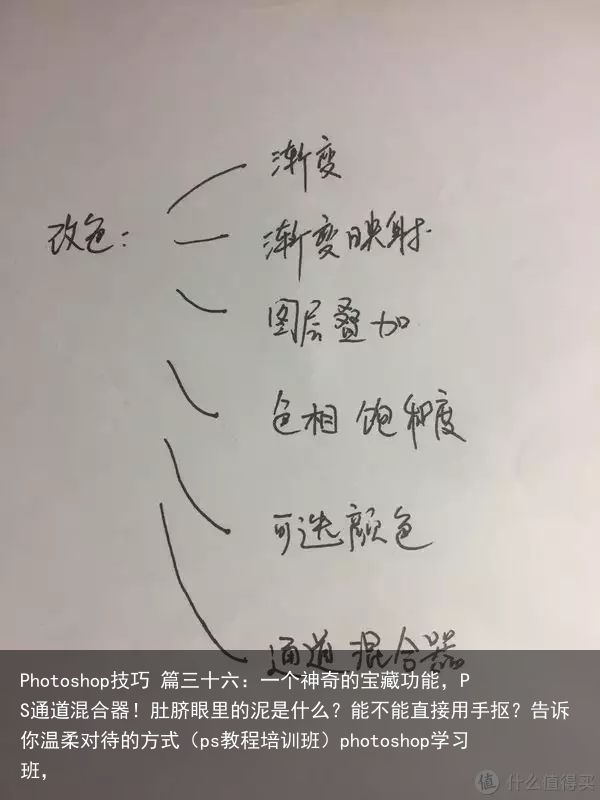 渐变
改色：
渐变映射
图层叠加
色相 饱和度
可选颜色
通道混合器
Photoshop技巧 篇三十六：一个神奇的宝藏功能，P
S通道混合器！肚脐眼里的泥是什么？能不能直接用手抠？告诉
你温柔对待的方式（ps教程培训班）photoshop学习
班，
值 什么值得买